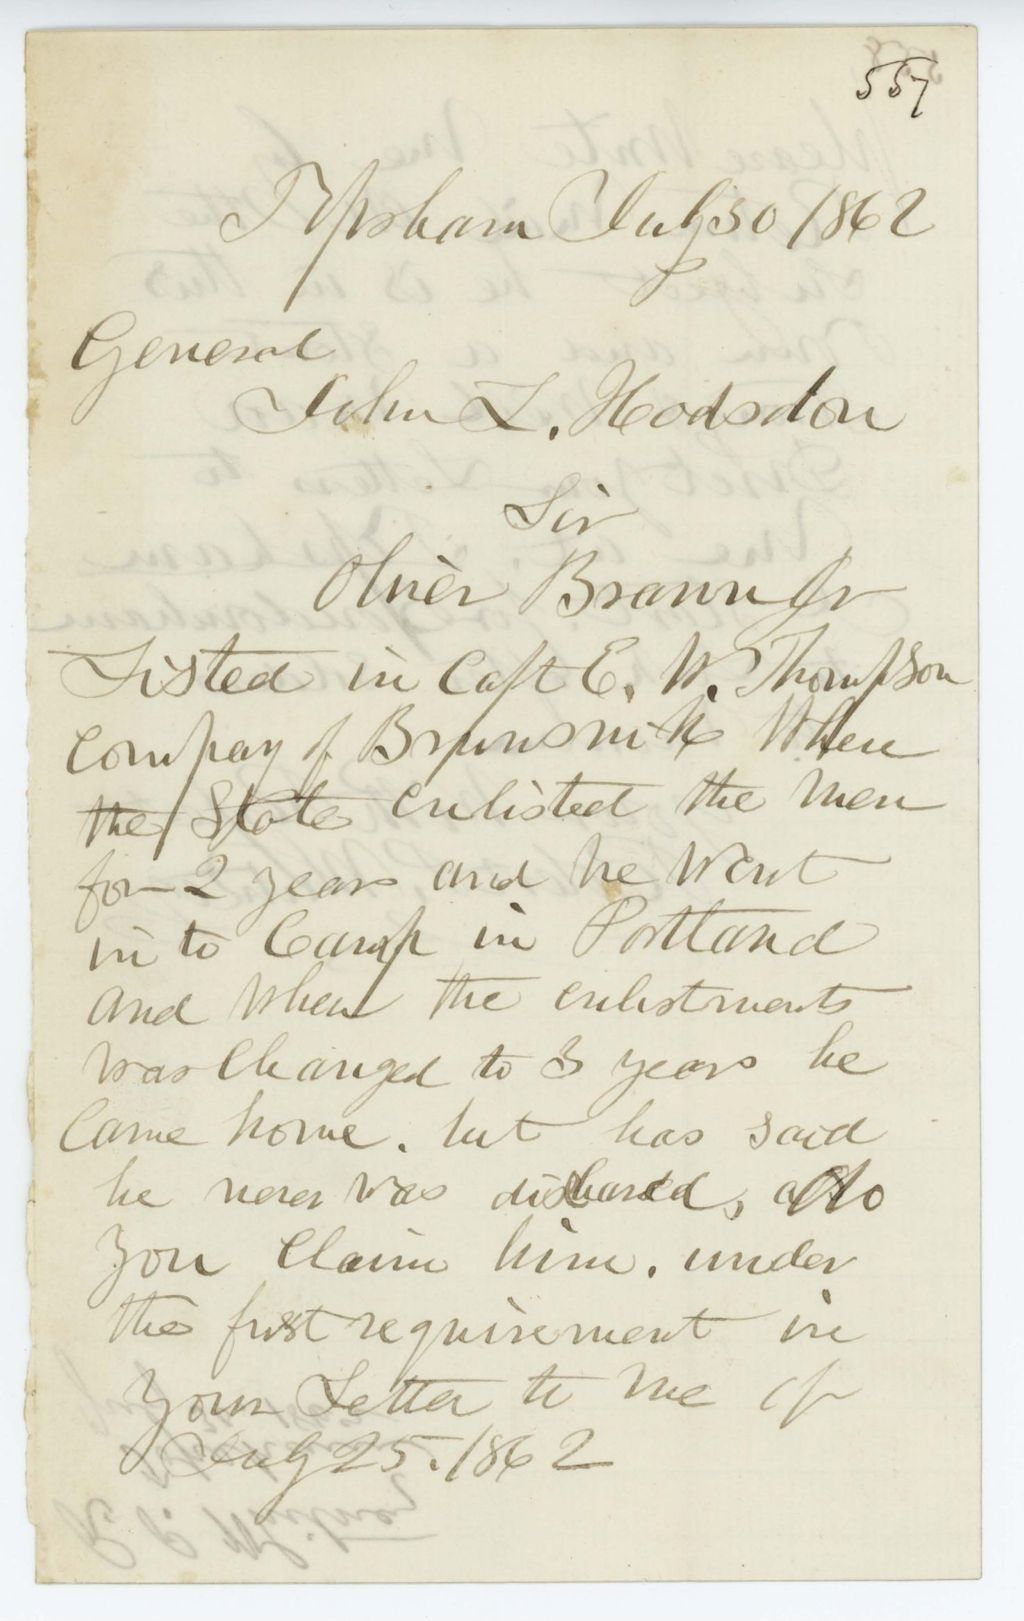 557
Topsham July 30 1862
General
John L. Hodsdon
Sir
Oliver Brann Jr
Listed in Capt E. W. Thompson
Compay of Brunswick When
the State enlisted the men
for 2 years and he went
in to Camp in Portland
and when the enlistments
was Changed to 3 years he
Came home. but has said
he never was
you Claim him. under
the first requirement in
your Letter to me of
July 25. 1862